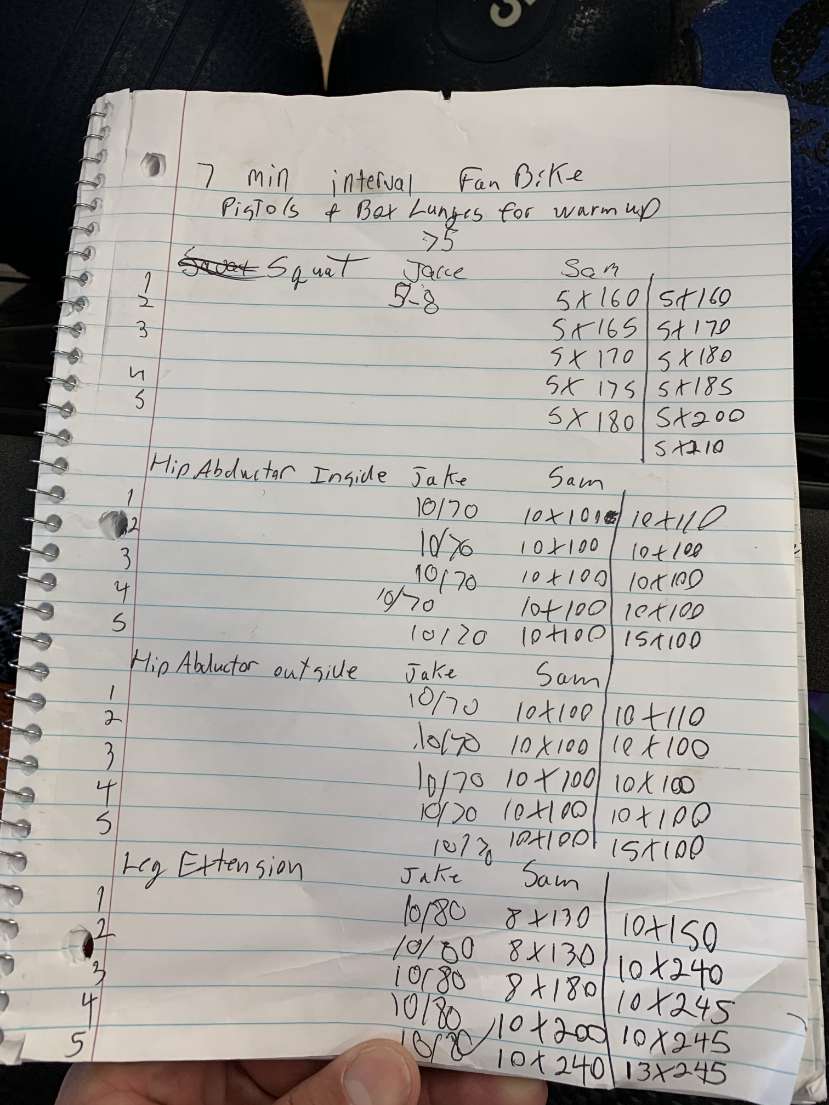 7 min interval Fan Bike
Pistols + Box Lunges for warm up
>5
Squat Jake Sam
1 5-8 5x160 5x160
2 5x165 5x170
3 5x170 5x180
4 5x175 5x185
5 5x180 5x200
5x210
Hip Abductor Inside Jake Sam
1 10/70 10x10 10x110
2 10/70 10x100 10x100
3 10/70 10x100 10x100
4 10/70 10x100 10x100
5 10/70 10x100 15x100
Hip Abductor outside Jake Sam
1 10/70 10x100 10x110
2 10/70 10x100 10x100
3 10/70 10x100 10x100
4 10/70 10x100 10x100
5 10/70 10x100 15x100
Leg Extension Jake Sam
1 10/80 8x130 10x150
2 10/80 8x130 10x240
3 10/80 8x180 10x245
4 10/80 10x200 10x245
5 10/80 10x240 13x245